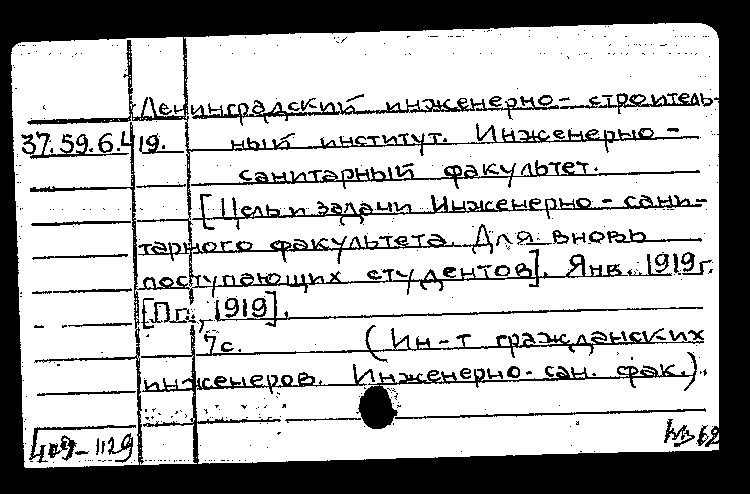 Ленинградский инженерно-строитель-
37.59.6.419. ный институт. Инженерно-
санитарный факультет.
[Цель и задачи Инженерно-сани-
тарного факультета. Для вновь
поступающих студентов]. Янв. 1919г.
[Пг., 1919].
7с. (Ин-т гражданских
инженеров. Инженерно-сан. фак.).
409-1129